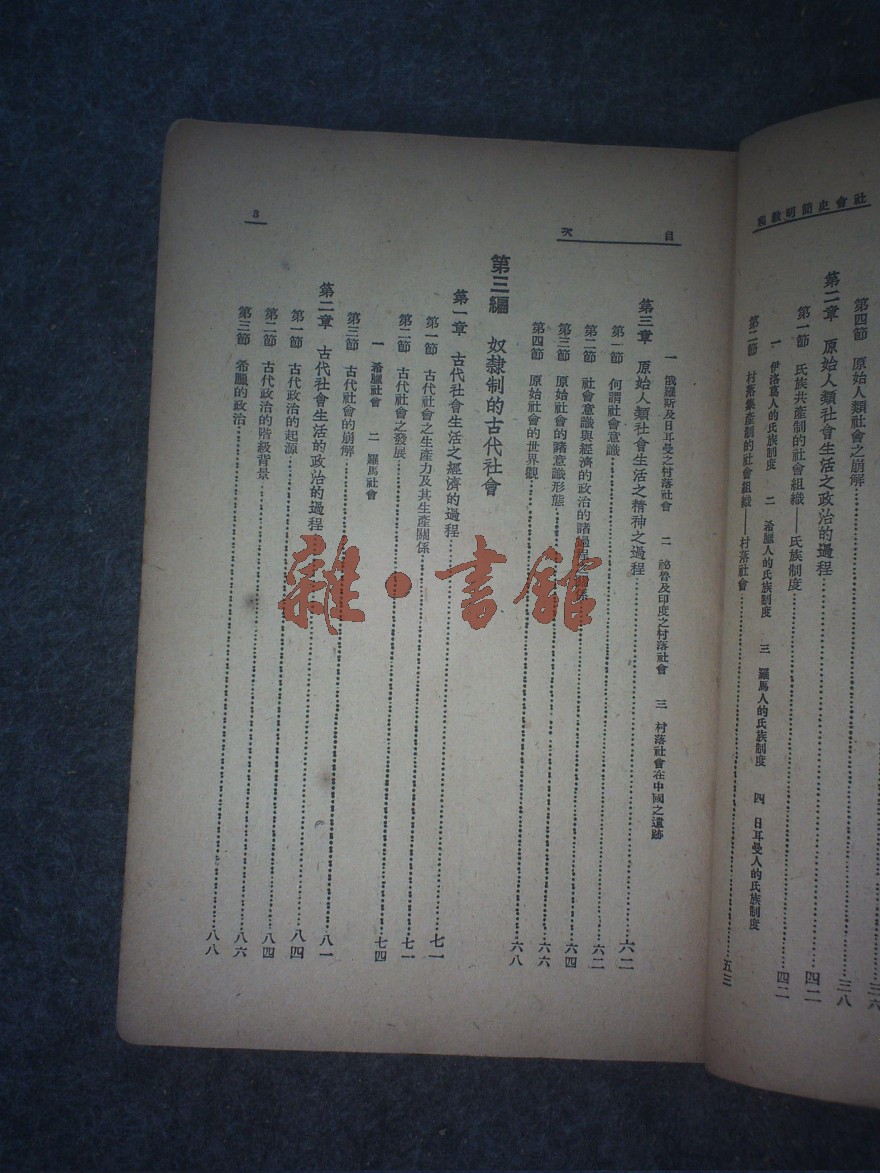 社會史簡明教程
第四節 原始人類社會之崩解……三六
第二章 原始人類社會生活之政治的過程……三八
第一節 氏族共產制的社會組織——氏族制度……四二
一 伊洛葛人的氏族制度 二 希臘人的氏族制度 三 羅馬人的氏族制度 四 日耳曼人的氏族制度……四二
第二節 村落集產制的社會組織——村落社會……五三
目次
3
一 俄羅斯及日耳曼之村落社會 二 祕魯及印度之村落社會 三 村落社會在中國之遺跡
第三章 原始人類社會生活之精神之過程……六二
第一節 何謂社會意識……六二
第二節 社會意識與經濟的政治的諸過程之關係……六四
第三節 原始社會的諸意識形態……六六
第四節 原始社會的世界觀……六八
第三編 奴隸制的古代社會
第一章 古代社會生活之經濟的過程……七一
第一節 古代社會之生產力及其生產關係……七一
第二節 古代社會之發展……七四
一 希臘社會 二 羅馬社會
第三節 古代社會的崩解……八一
第二章 古代社會生活的政治的過程……八四
第一節 古代政治的起源……八四
第二節 古代政治的階級背景……八六
第三節 希臘的政治……八八
雜·書館